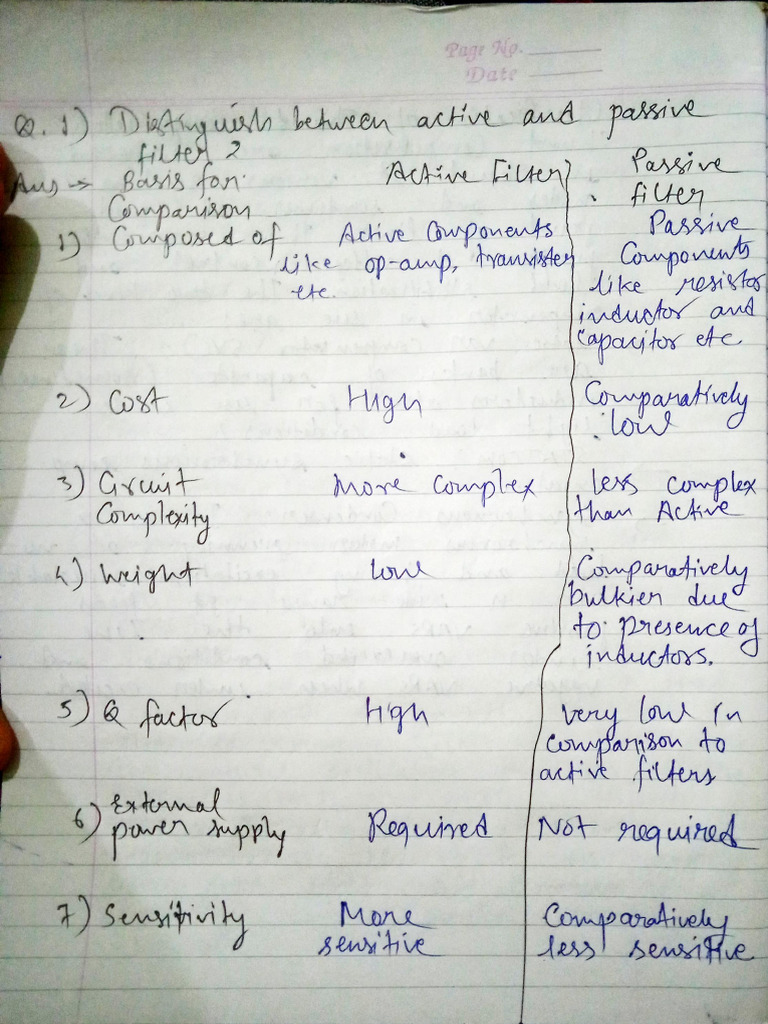 Page No.
Date
Q. 1) Distinguish between active and passive
filter ?
Ans → Basis for Comparison Active Filter Passive filter
1) Composed of Active Components like op-amp, transister etc. Passive Components like resistor inductor and capacitor etc.
2) Cost High Comparatively low
3) Circuit Complexity More Complex less complex than Active
4) Weight low Comparatively bulkier due to presence of inductors.
5) Q factor High very low in comparison to active filters
6) External power supply Required Not required
7) Sensitivity More sensitive Comparatively less sensitive